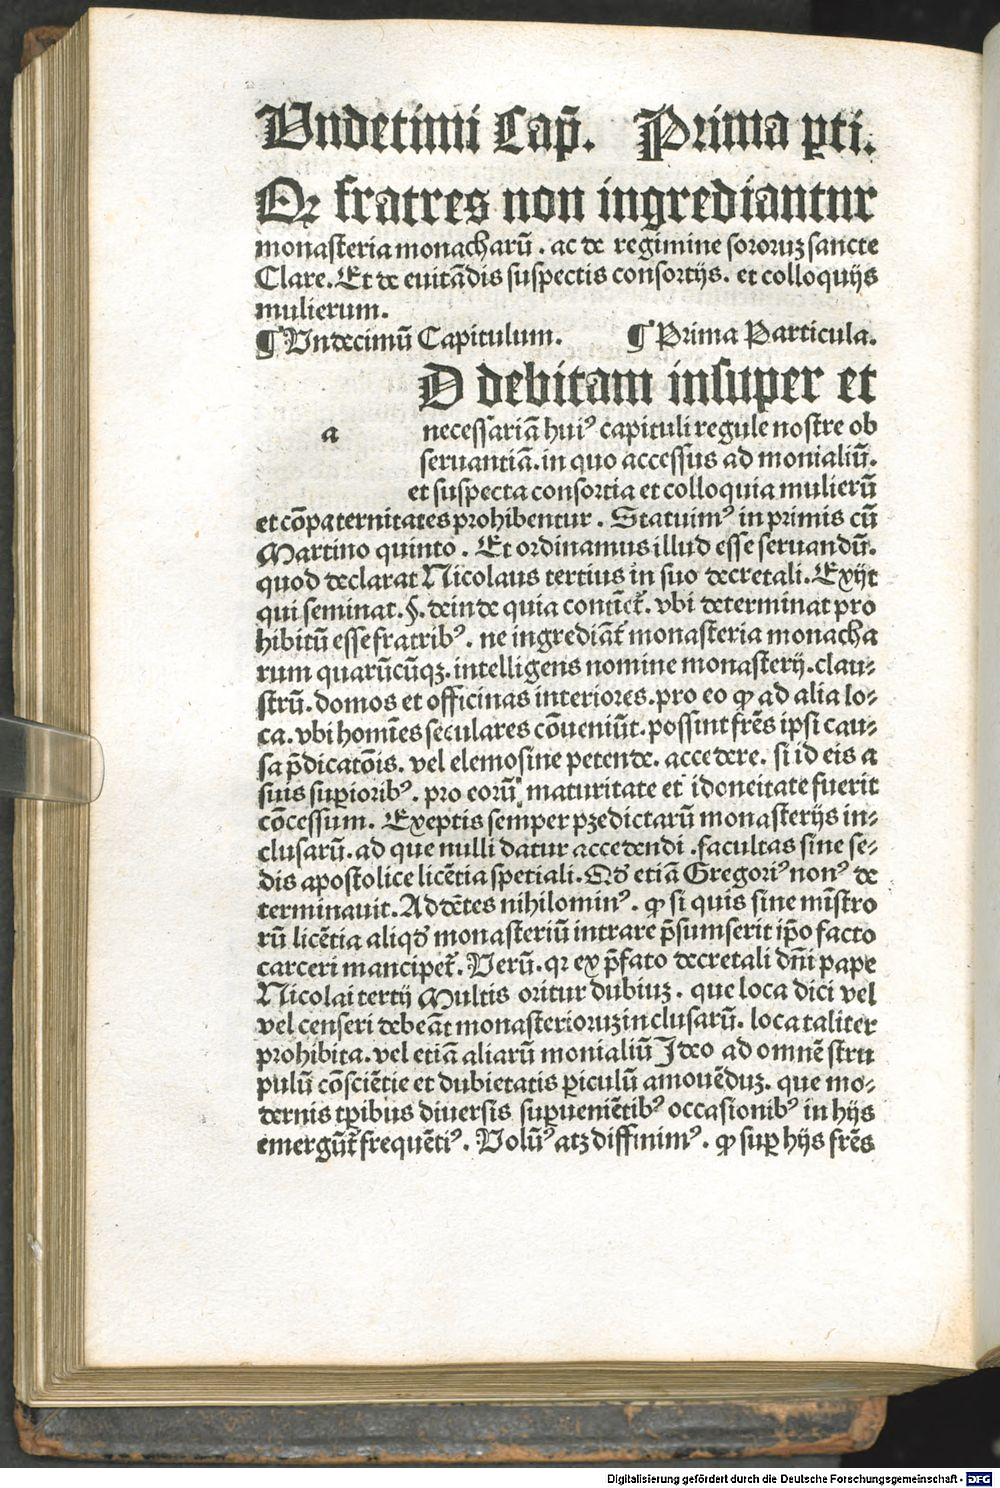 Vndecimi Cap̄. Prima ꝑti.
Qꝛ fratres non ingrediantur
monasteria monacharū . ac de regimine sororuꝫ sancte
Clare. Et de euitādis suspectis consortijs. et colloquijs
mulierum.
¶ Vndecimū Capitulum. ¶ Prima Particula.
D debitam insuper et
a necessariā huiꝰ capituli regule nostre ob
seruantiā. in quo accessus ad monialiū.
et suspecta consortia et colloquia mulierū
et cōpaternitates prohibentur . Statuimꝰ in primis cū
Martino quinto . Et ordinamus illud esse seruandū.
quod declarat Nicolaus tertius in suo decretali. Exijt
qui seminat. §. deinde quia contīet᷑. vbi determinat pro
hibitū esse fratribꝰ. ne ingrediāt᷑ monasteria monacha
rum quarūcūqꝫ. intelligens nomine monasterij. clau⸗
strū. domos et officinas interiores. pro eo ꝙ ad alia lo⸗
ca. vbi homīes seculares cōueniūt. possint frēs ipsi cau⸗
sa p̄dicatōis. vel elemosine petende. accedere. si id eis a
suis suꝑioribꝰ. pro eorū maturitate et idoneitate fuerit
cōcessum. Exeptis semper predictarū monasterijs in⸗
clusarū. ad que nulli datur accedendi .facultas sine se⸗
dis apostolice licētia spetiali. Qđ etiā Gregoriꝰ nonꝰ de
terminauit. Addētes nihilominꝰ. ꝙ si quis sine mīstro
rū licētia aliqđ monasteriū intrare p̄sumserit ip̄o facto
carceri mancipet᷑. Verū. qꝛ ex p̄fato decretali dn̄i pape
Nicolai tertij Multis oritur dubiuꝫ . que loca dici vel
vel censeri debeāt monasterioruꝫ inclusarū. loca taliter
prohibita. vel etiā aliarū monialiū Ideo ad omnē scru
pulū cōsciētie et dubietatis ꝑiculū amouēduꝫ. que mo⸗
dernis tꝑibus diuersis suꝑueniētibꝰ occasionibꝰ in hijs
emergūt᷑ frequētiꝰ. Volūꝰ atꝫ diffinimꝰ . ꝙ suꝑ hijs frēs
Digitalisierung gefördert durch die Deutsche Forschungsgemeinschaft - DFG